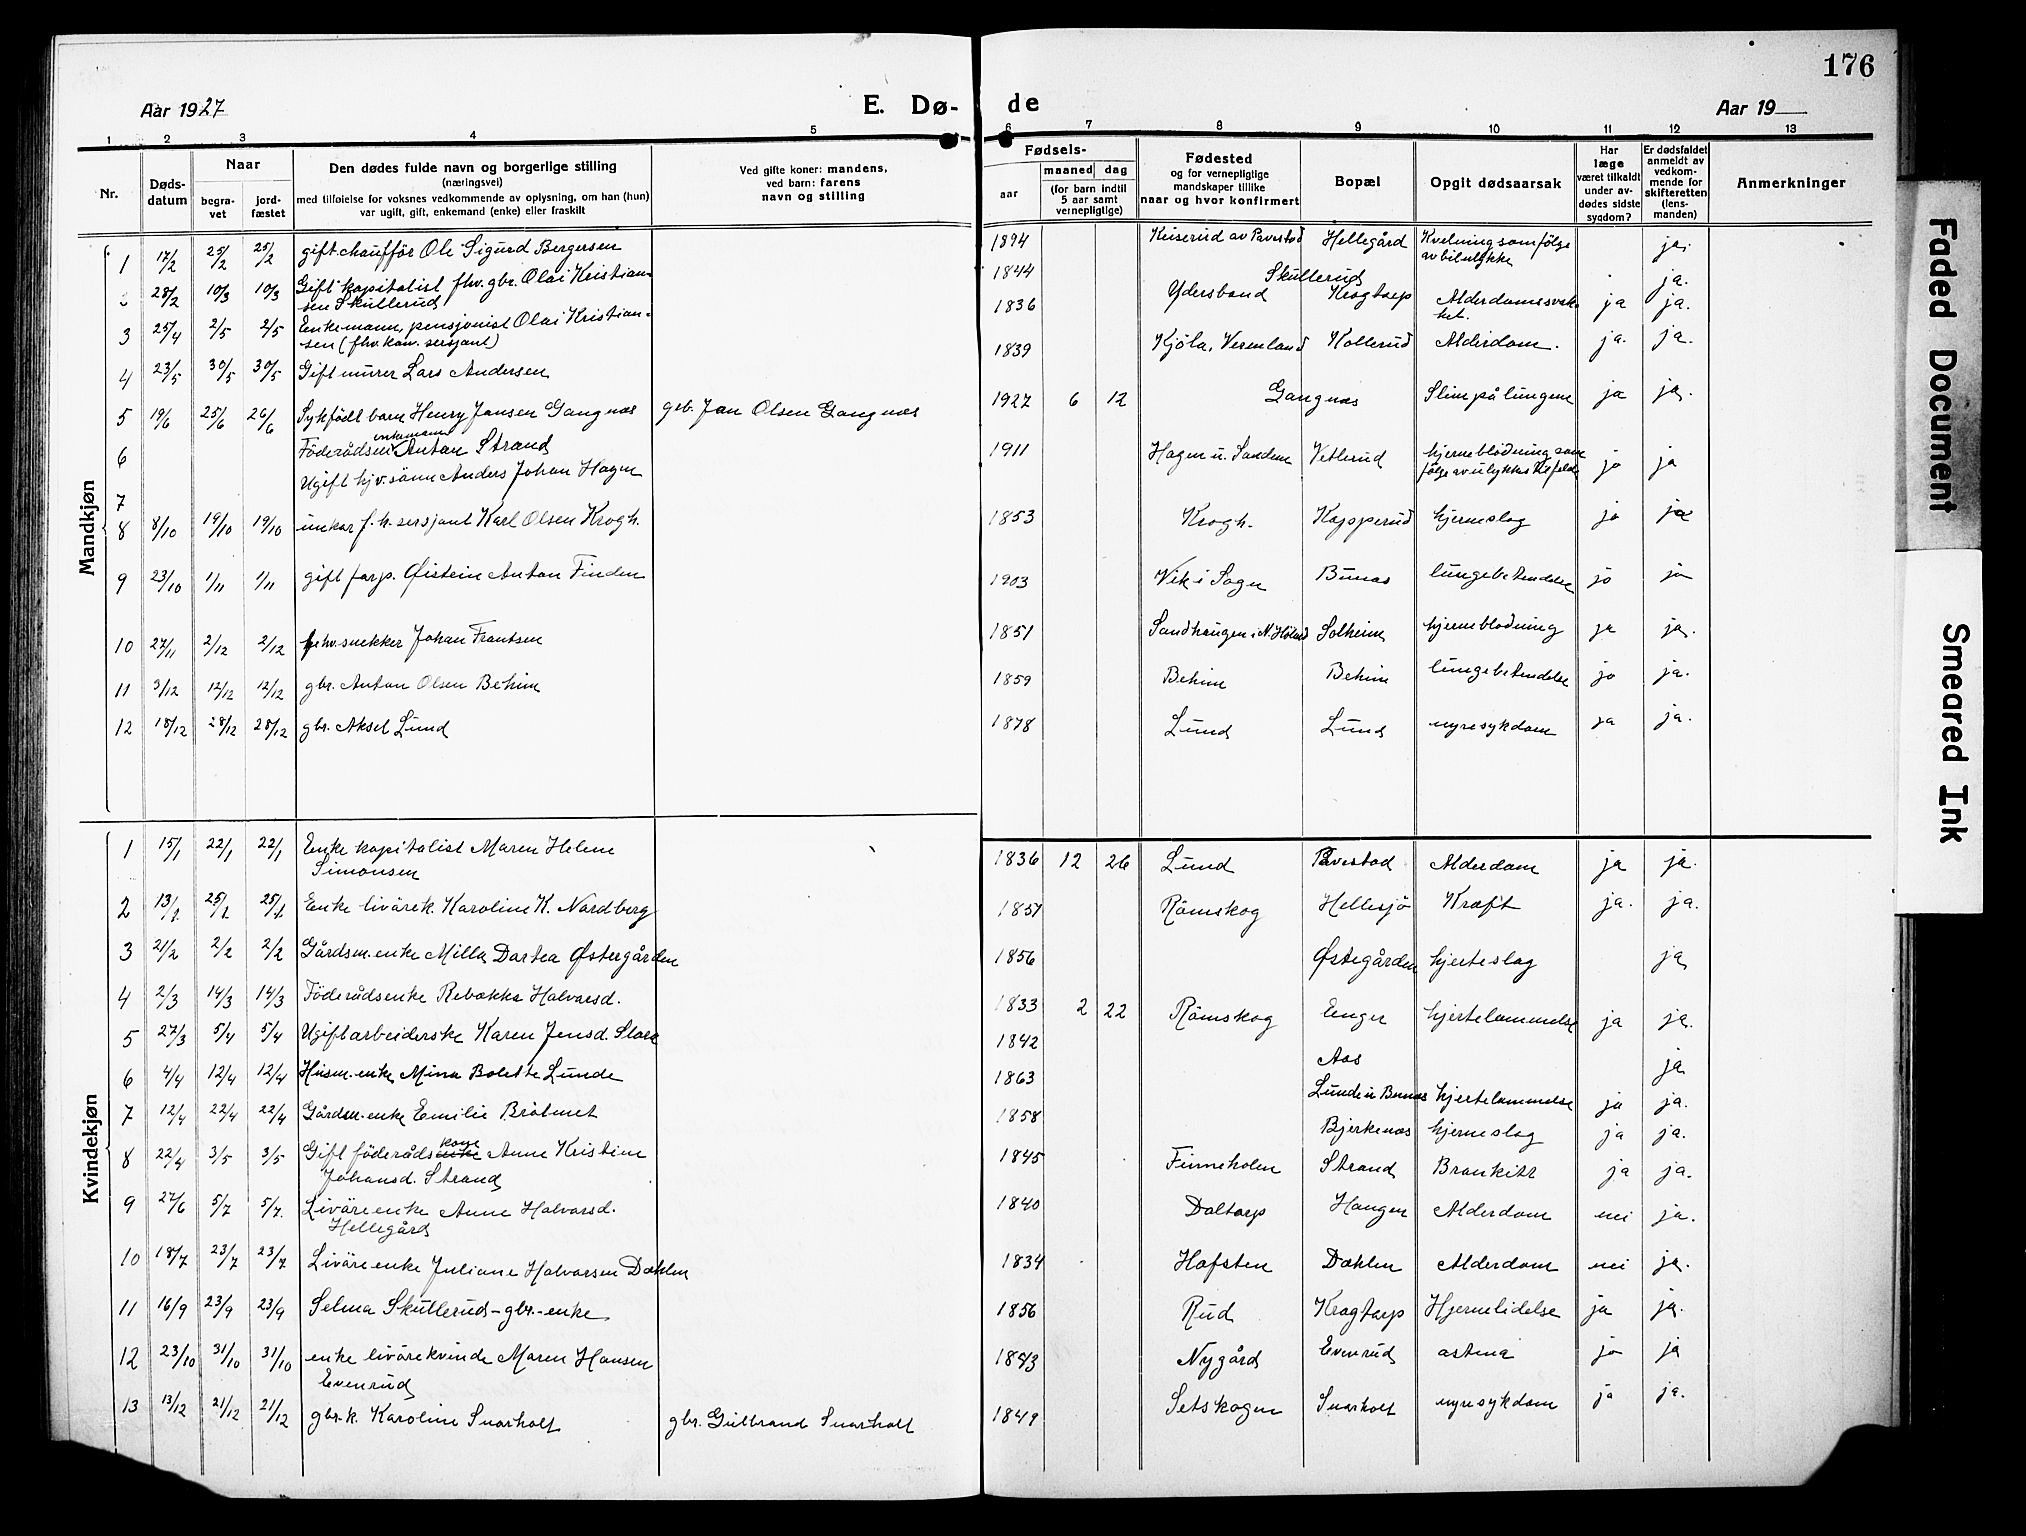 176
Aar 1927 E. Dø- de Aar 19
1 2 3 4 5 6 7 8 9 10 11 12 13
Nr.
Døds-datum
Naar
begra-vet
jord-fæstet
Den dødes fulde navn og borgerlige stilling
(næringsvei)
med tilføielse for voksnes vedkommende av oplysning, om han (hun)
var ugift, gift, enkemand (enke) eller fraskilt
Ved gifte koner: mandens,
ved barn: farens
navn og stilling
Fødsels-
aar
maaned dag
(for barn indtil
5 aar samt
vernepligtige)
Fødested
og for vernepligtige
mandskaper tillike
naar og hvor konfirmert
Bopæl
Opgit dødsaarsak
Har
læge
været tilkaldt
under av-
dødes sidste
sygdom?
Er dødsfaldet
anmeldt av
vedkom-
mende for
skifteretten
(lens-
manden)
Anmerkninger
Mandkjøn
1 17/2 25/2 25/2 gift chauffør Ole Sigurd Bergersen 1894 Hellegård Kvelning som følge av bilulykke ja.
28/2 10/3 10/3 Gift kapitalist fhv. gbr. Olai Kristiansen Skullerud 1844 Skullerud ja.
3 25/4 2/5 2/5 Enkemann, pensjonist Olai Kristiansen (fhv. kav. sersjant) 1836 Ydersbond Krogtorp Alderdomssvakhet. ja ja.
4 23/5 30/5 30/5 Gift murer Lars Andersen 1839 Kjöla, Vermland Kollerud Alderdom. ja. ja.
5 19/6 25/6 26/6 Sykfødt barn Henry Jansen Gangnæs gbr. Jan Olsen Gangnæs 1927 6 12 Gangnæs Slim på lungene ja ja.
6 Föderådsen enkemann Anton Strand
7 Ugift hjv. sönn Anders Johan Hagen 1911 Hagen u. Sandem Vetlerud hjerneblödning som følge av ulykkestilfelde ja ja
8 8/10 19/10 19/10 f. h. sersjant Karl Olsen Krogh. 1853 Krogh. Kopperud hjerneslag ja ja
9 23/10 1/11 1/11 gift forp. Øistein Anton Finden 1903 Vik i Sogn Bunæs lungebetendelse ja ja
10 27/11 2/12 2/12 fhv. snekker Johan Frantsen 1851 Sandhaugen i N. Höland Solheim hjerneblödning ja ja.
11 3/12 12/12 12/12 gbr. Anton Olsen Behim 1859 Behim Behim lungebetendelse ja ja.
12 18/12 28/12 28/12 gbr. Aksel Lund 1878 Lund Lund nyresykdom ja ja.
Kvindekjøn
1 15/1 22/1 22/1 Enke kapitalist Maren Helene Simonsen 1836 12 26 Lund Alderdom ja ja.
2 13/1 25/1 25/1 Enke livörek. Karoline K. Nordberg 1857 Römskog Hellesjö Kræft ja. ja.
3 21/2 2/2 2/2 Gårdsm. enke Milla Dortea Østergården 1856 Østegården hjerteslag ja
4 2/3 14/3 14/3 Föderådsenke Rebekka Halvorsd. 1833 2 22 Römskog Enger hjertelammelse ja ja.
5 27/3 5/4 5/4 Ugift arbeiderske Karen Jensd. 1842 Aas ja
6 4/4 12/4 12/4 Husm. enke Mina Bolette Lunde 1863 Lunde u Bunæs hjertelammelse ja ja.
7 12/4 22/4 22/4 Gårdsm. enke Emilie Bråtnet 1858 Bjerkenæs hjerneslag ja ja.
8 22/4 3/5 3/5 Gift föderåds enke kone Anne Kristine Johansd. Strand 1845 Finneholm Strand Bronkitt ja ja.
9 27/6 5/7 5/7. Livöreenke Anne Halvorsd. Hellegård 1840 Daltorp Haugen Alderdom nei ja.
10 18/7 23/7 23/7 Livöreenke Juliane Halvorsen Dahlen 1834 Hofsten Dahlen Alderdom nei ja.
11 16/9 23/9 23/9 Selma Skullerud - gbr.-enke 1856 Rud Krogtorp Hjernelidelse ja ja.
12 23/10 31/10 31/10 enke livörekvinde Maren Hansen Evenrud 1843 Nygård Evenrud astma ja ja
13 13/12 21/12 21/12 gbr. k. Karoline Snarholt gbr. Gulbrand Snarholt 1849 Setskogen Snarholt nyresykdom ja ja.
Faded Document
Smeared Ink